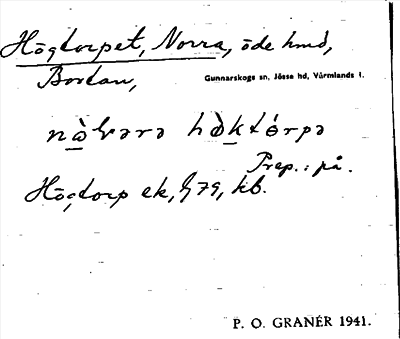 Högtorpet, Norra, öde hmd,
Bortan,
Gunnarskogs sn, Jösse hd, Värmlands l.
Prep.: på.
Högtorp ek, § 79, kb.
P. O. GRANÉR 1941.